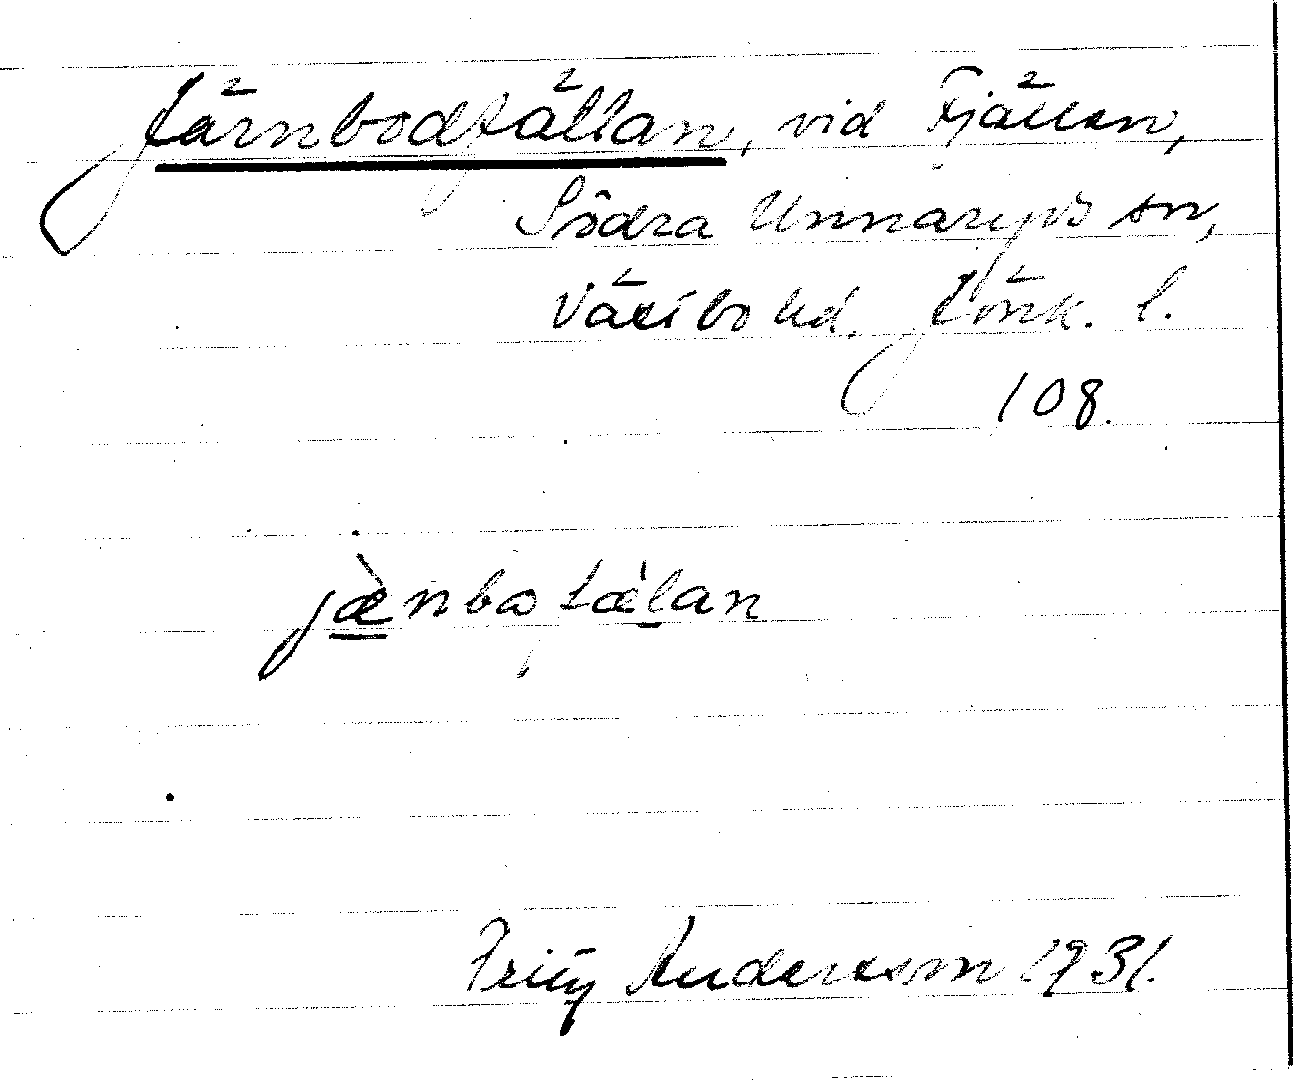 Järnbodfällan, vid Fjällen,
Södra Unnaryds sn,
Västbo hd. Jönk. l.
108.
jæ̀nbofæ̀lan
Fritz Andersson 1931.